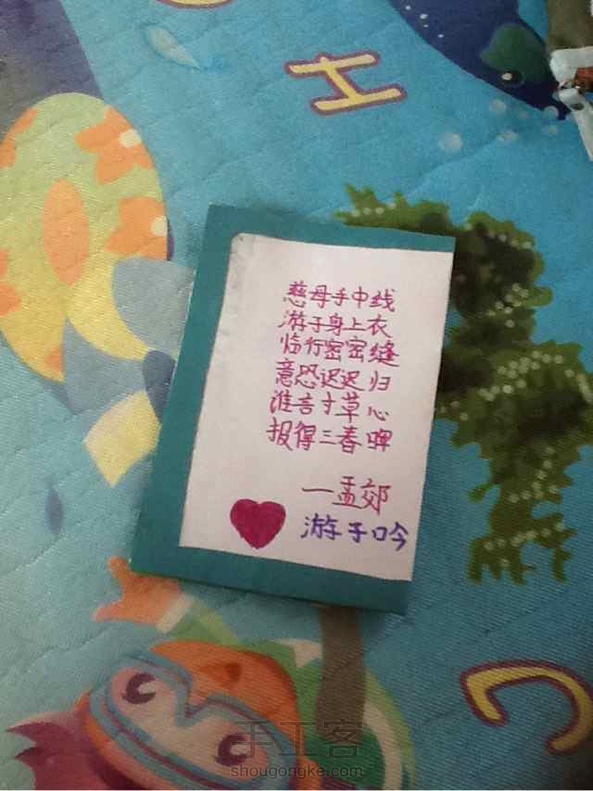 H
慈母手中线
游子身上衣
临行密密缝
意恐迟迟归
谁言寸草心
报得三春晖
—孟郊
游子吟
C
手工客
shougongke.com